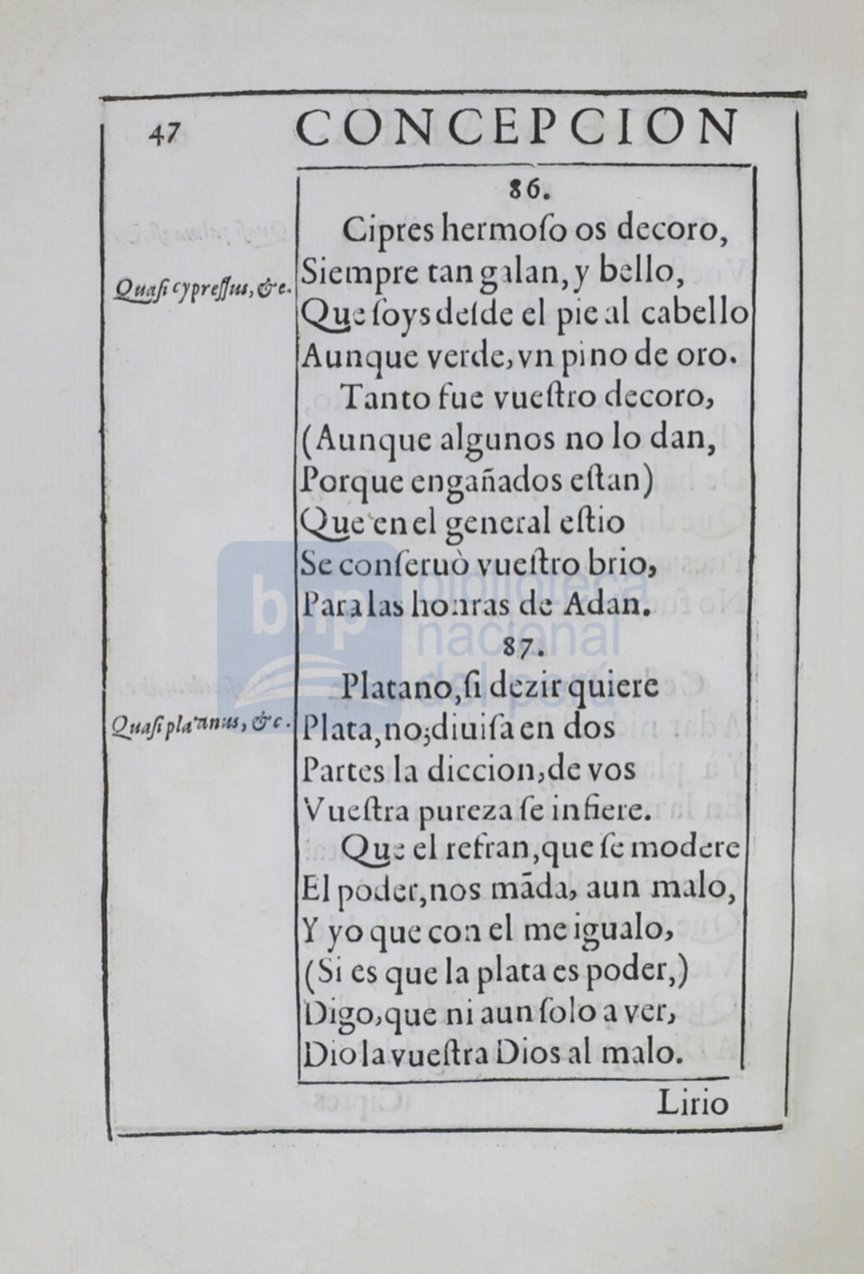 47 CONCEPCION
86.
Cipres hermoſo os decoro,
Quaſi cypreſſus, &c.
Siempre tan galan, y bello,
Que ſoys deſde el pie al cabello
Aunque verde, vn pino de oro.
Tanto fue vueſtro decoro,
(Aunque algunos no lo dan,
Porque engañados eſtan)
Que en el general eſtio
Se conſeruò vueſtro brio,
Para las honras de Adan.
87.
Platano, ſi dezir quiere
Quaſi platanus, &c.
Plata, no; diuiſa en dos
Partes la diccion, de vos
Vueſtra pureza ſe infiere.
Que el refran, que ſe modere
El poder, nos mãda, aun malo,
Y yo que con el me igualo,
(Si es que la plata es poder,)
Digo, que ni aun ſolo a ver,
Dio la vueſtra Dios al malo.
Lirio
bnp biblioteca
nacional
del perú